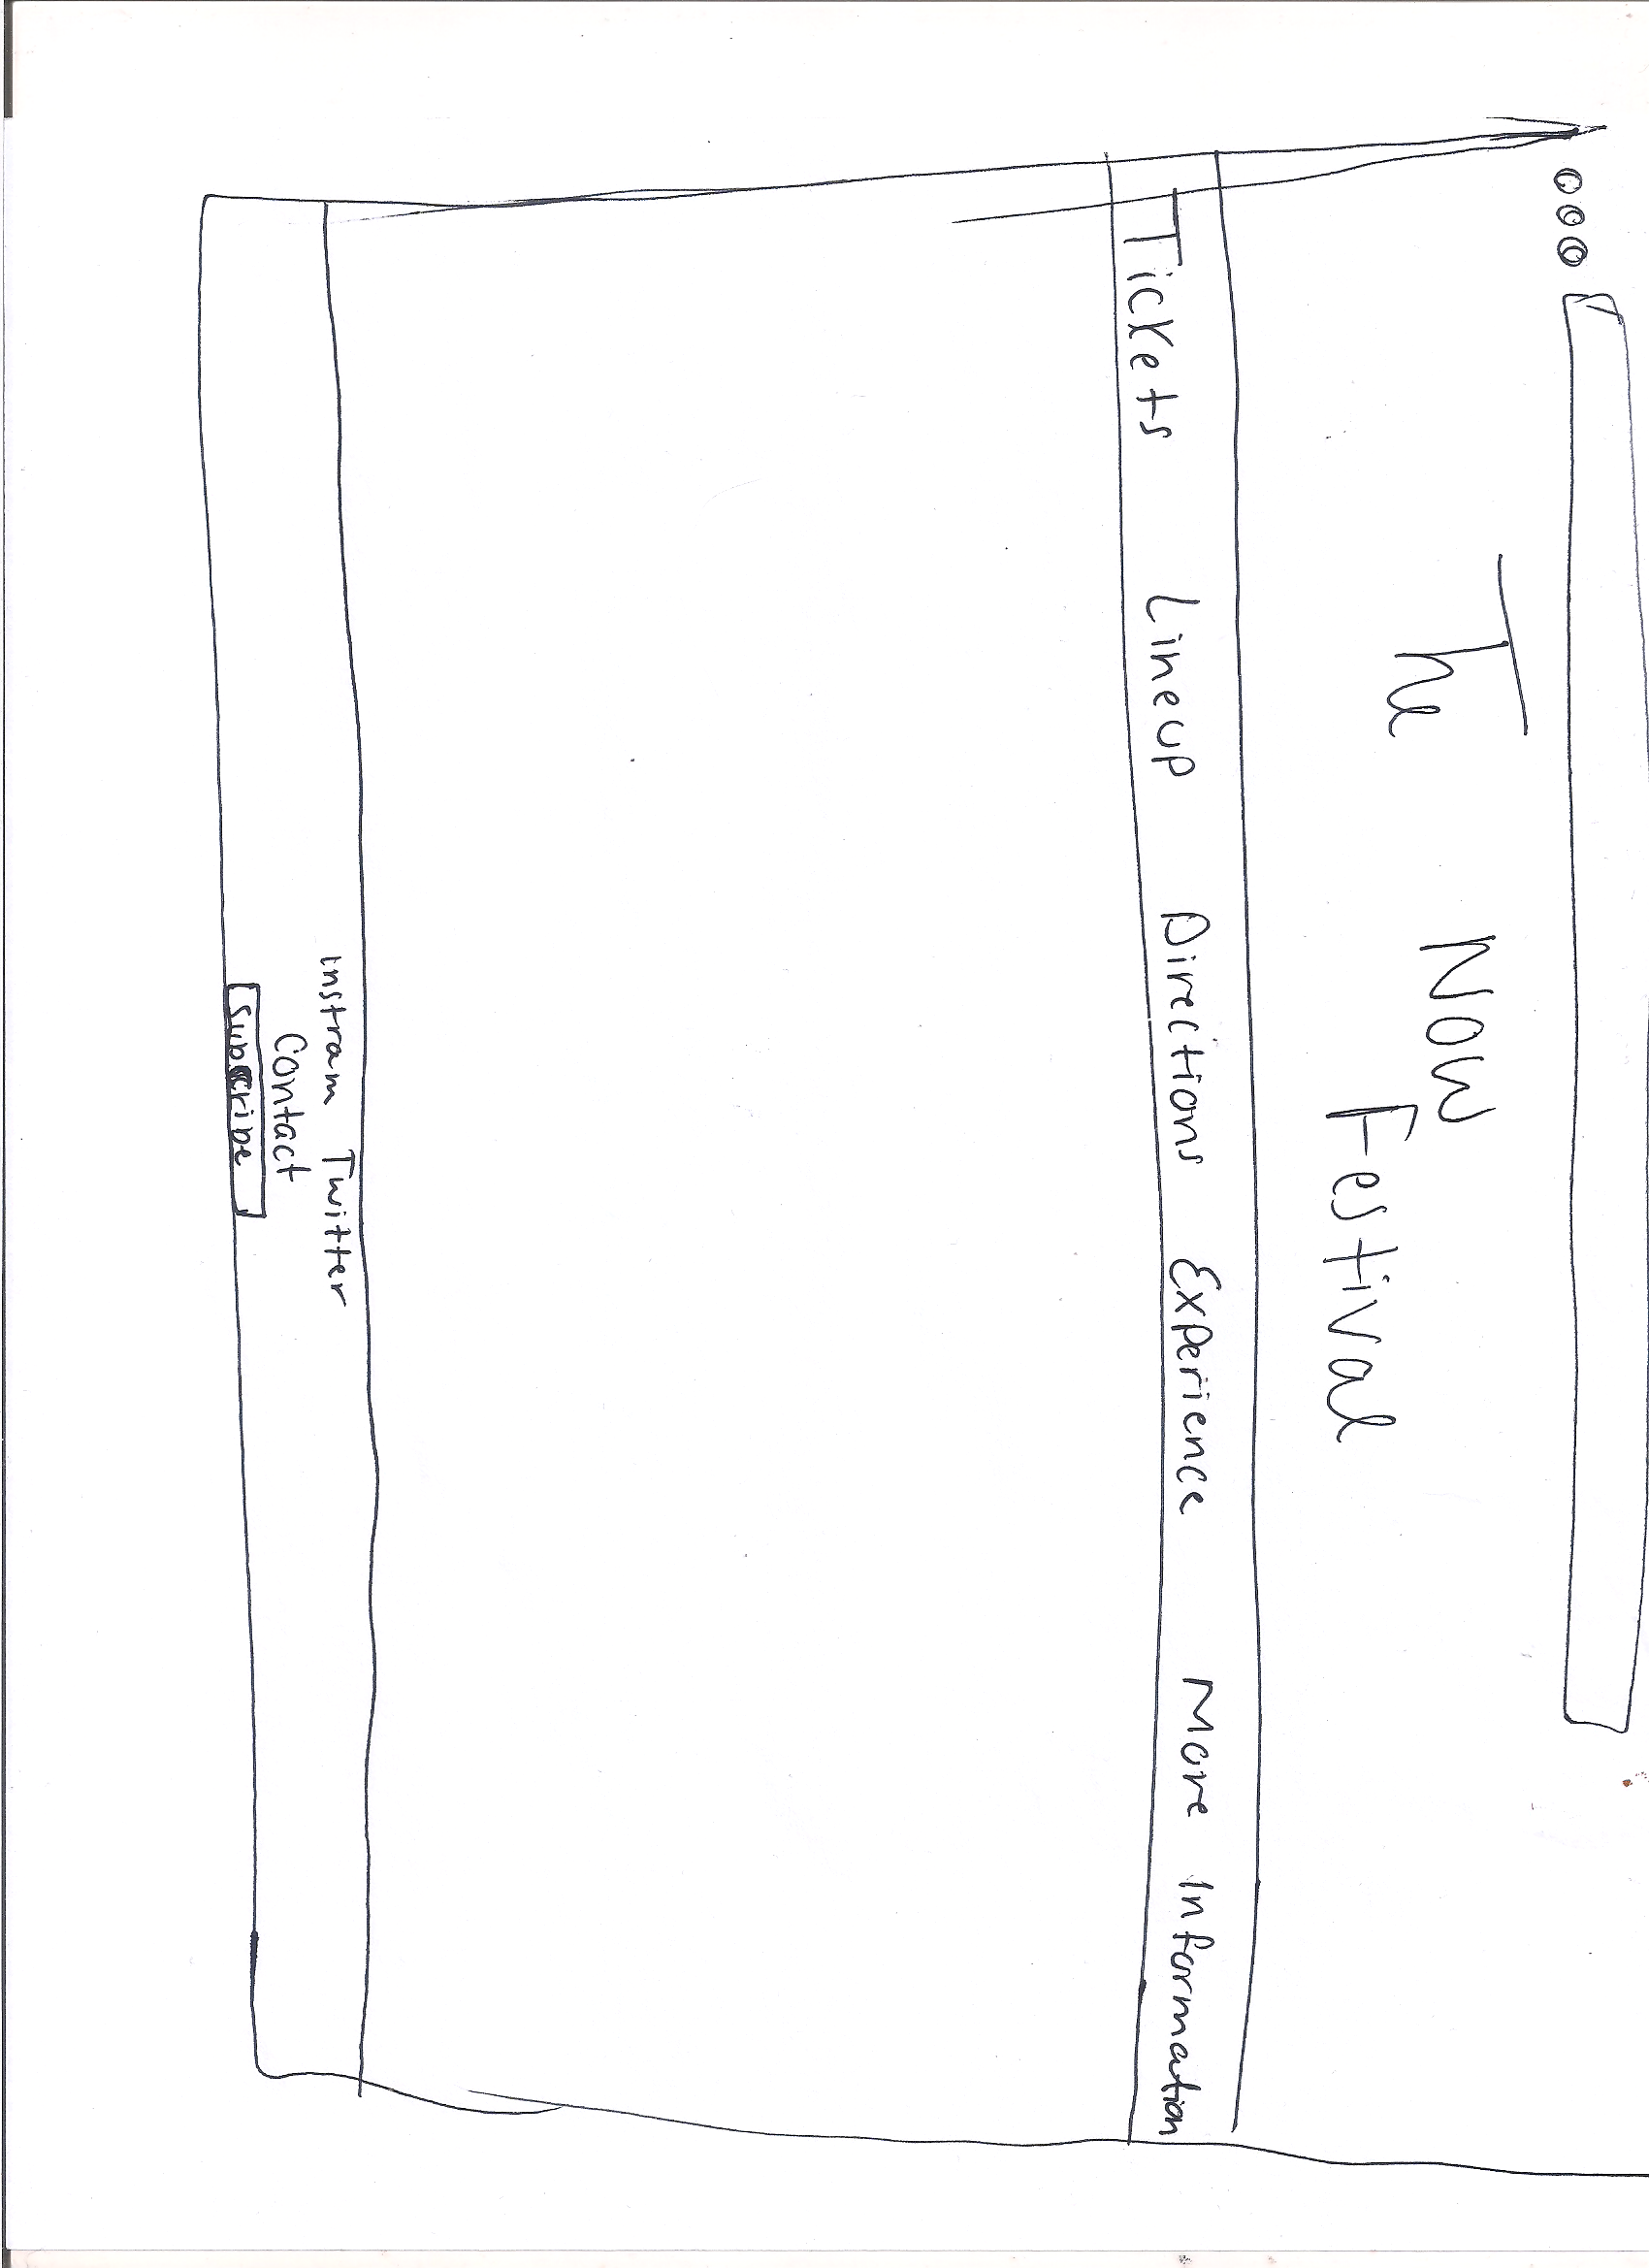 The Now
Festival
Tickets Lineup Directions Experience More Information
Instram Twitter
Contact
Subscribe